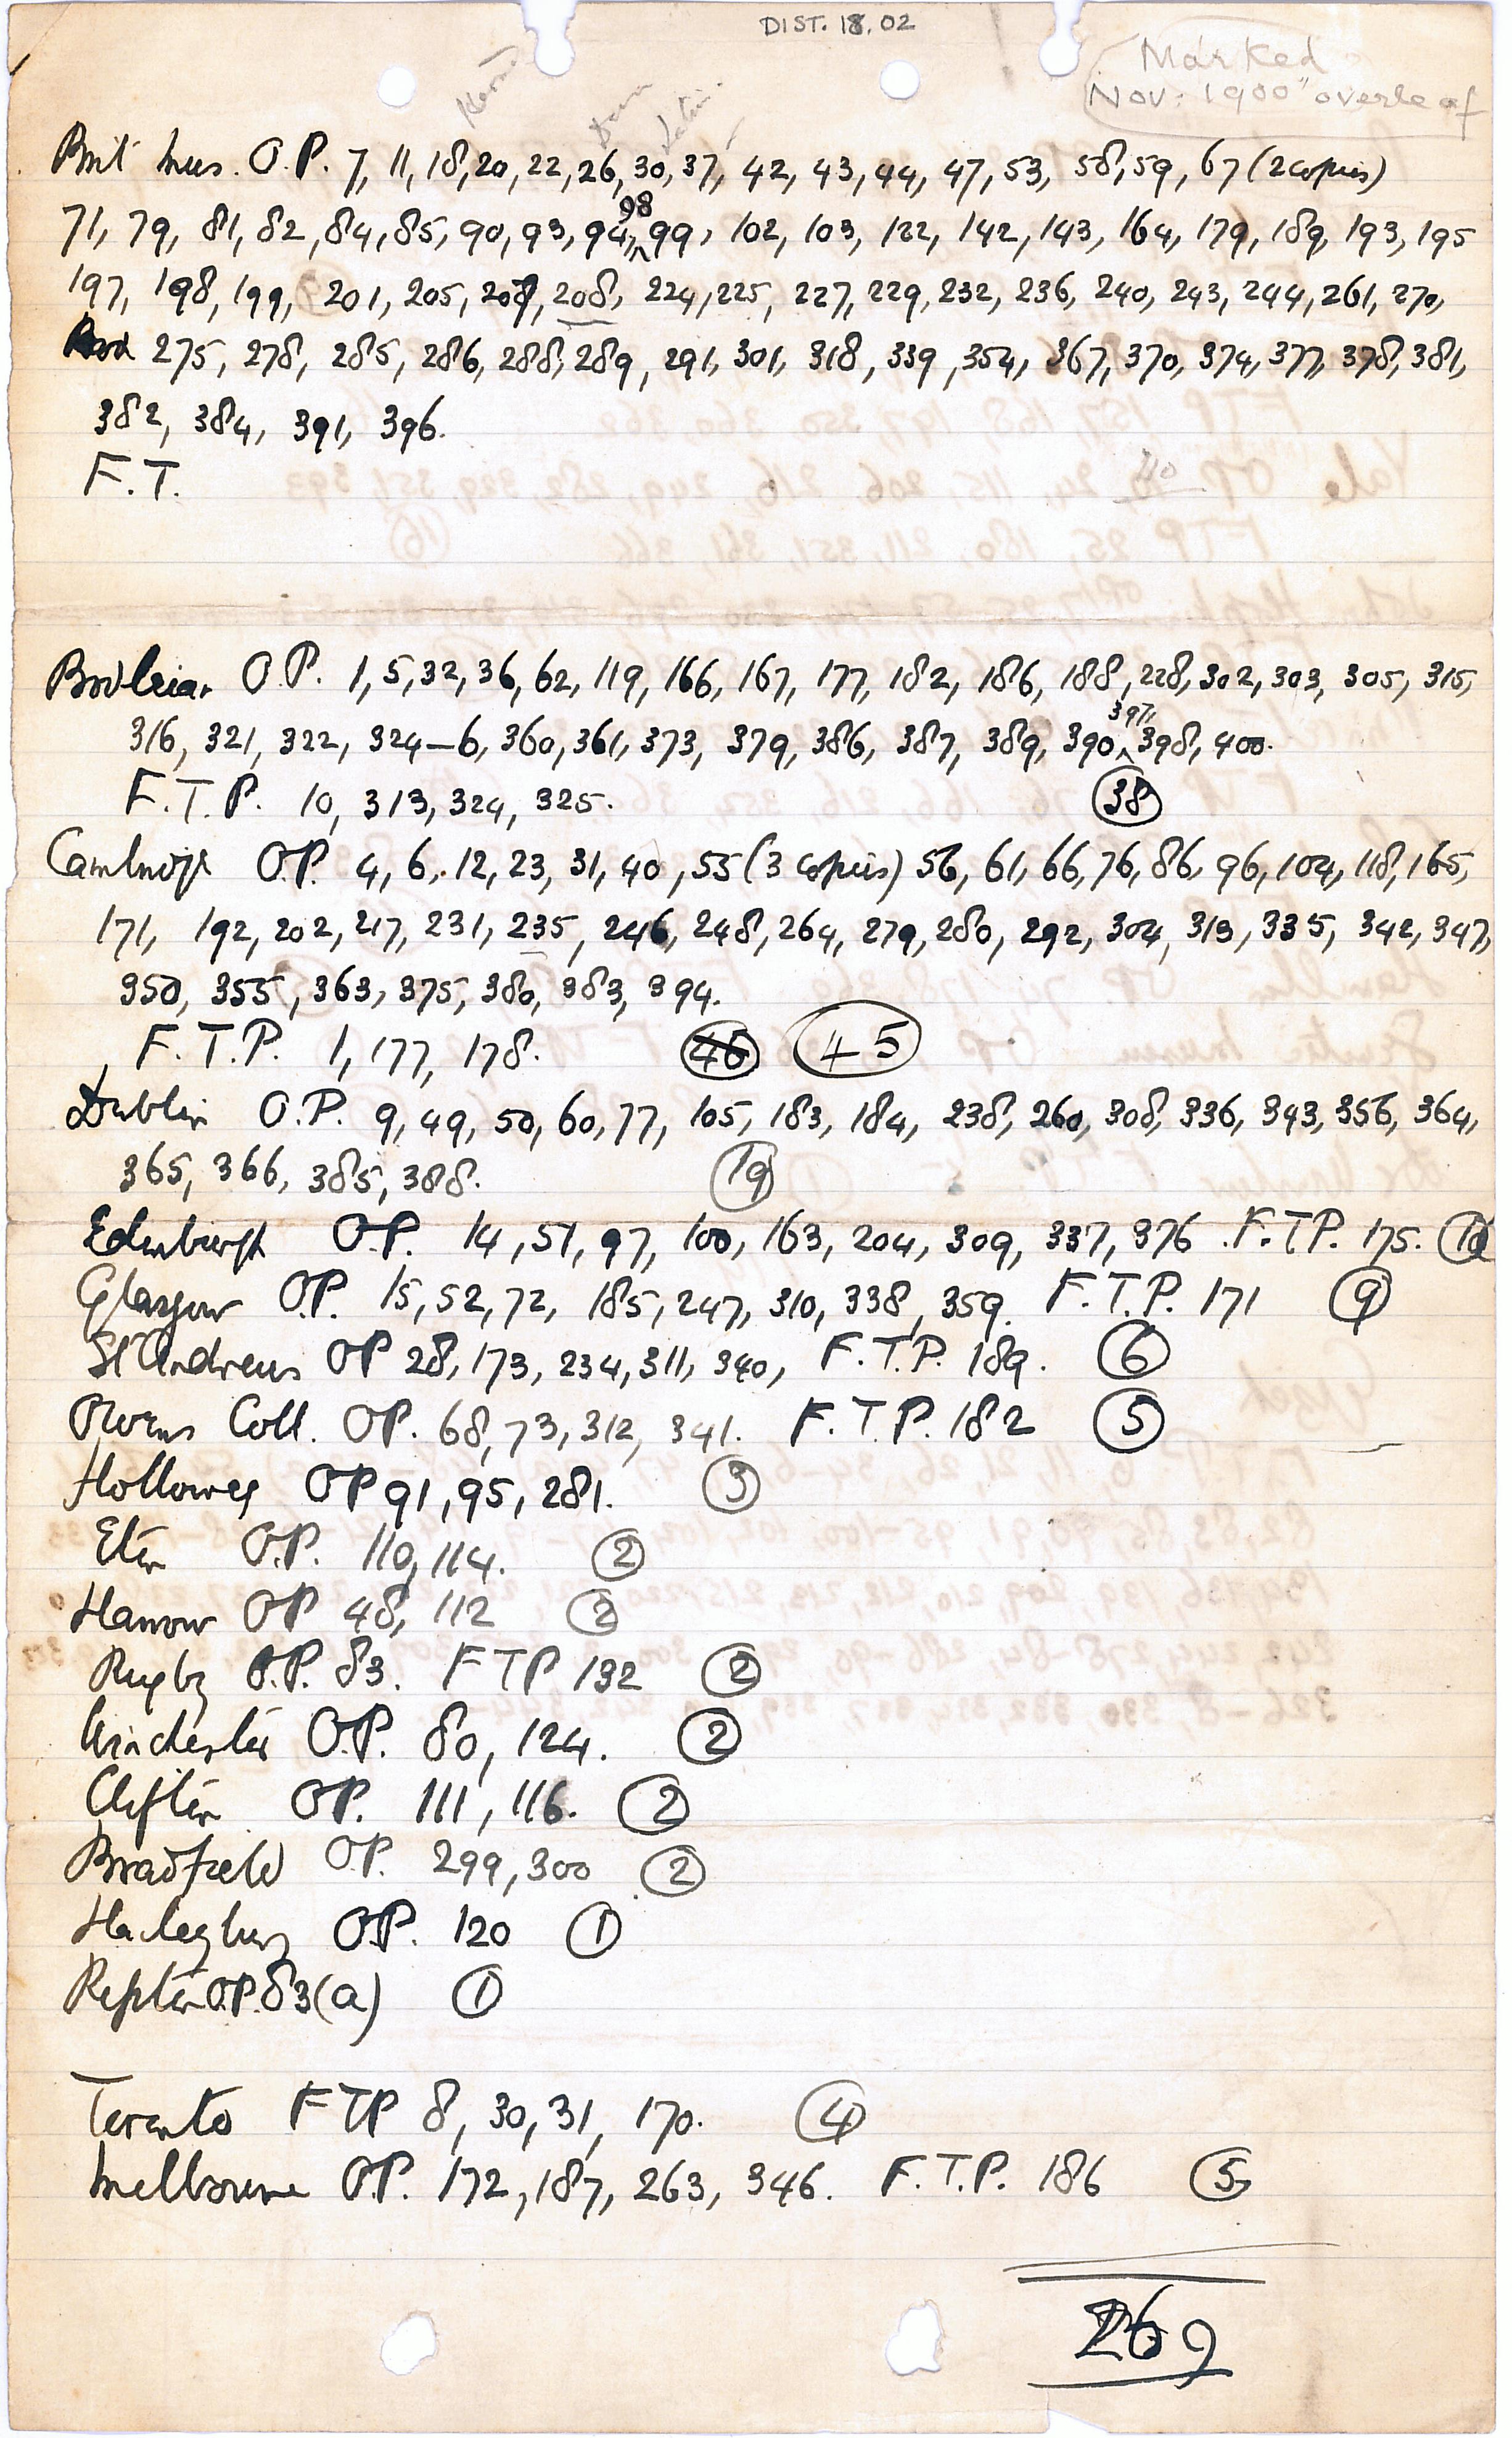 DIST. 18.02
Marked
Nov: 1900" overleaf
Brit Mus. O.P. 7, 11, 18, 20, 22, 26, 30, 37, 42, 43, 44, 47, 53, 58, 59, 67 (2 copies)
71, 79, 81, 82, 84, 85, 90, 93, 94, 98, 99, 102, 103, 122, 142, 143, 164, 179, 189, 193, 195
197, 198, 199, 201, 205, 207, 208, 224, 225, 227, 229, 232, 236, 240, 243, 244, 261, 270,
275, 278, 285, 286, 288, 289, 291, 301, 318, 339, 354, 367, 370, 374, 377, 378, 381,
382, 384, 391, 396.
F.T.
110
Bodleian O.P. 1, 5, 32, 36, 62, 119, 166, 167, 177, 182, 186, 188, 228, 302, 303, 305, 315,
316, 321, 322, 324–6, 360, 361, 373, 379, 386, 387, 389, 390, 397, 398, 400.
F.T.P. 10, 313, 324, 325. 38
Cambridge O.P. 4, 6, 12, 23, 31, 40, 55 (3 copies) 56, 61, 66, 76, 86, 96, 104, 118, 165,
171, 192, 202, 217, 231, 235, 246, 248, 264, 279, 280, 292, 304, 313, 335, 342, 347,
350, 355, 363, 375, 380, 383, 394.
F.T.P. 1, 177, 178. 46 45
Dublin O.P. 9, 49, 50, 60, 77, 105, 183, 184, 238, 260, 308, 336, 343, 356, 364,
365, 366, 385, 388. 19
Edinburgh O.P. 14, 51, 97, 100, 163, 204, 309, 337, 376. F.T.P. 175. 10
Glasgow O.P. 15, 52, 72, 185, 247, 310, 338, 359. F.T.P. 171 9
St Andrews OP 28, 173, 234, 311, 340, F.T.P. 189. 6
Owens Coll. OP. 68, 73, 312, 341. F.T.P. 182 5
Holloway OP 91, 95, 281. 3
Eton O.P. 110, 114. 2
Harrow OP 48, 112 2
Rugby O.P. 83. FTP 132 2
Winchester O.P. 80, 124. 2
Clifton OP. 111, 116. 2
Bradfield O.P. 299, 300 2
Haileybury O.P. 120 1
Repton O.P. 83(a) 1
Toronto FTP 8, 30, 31, 170. 4
Melbourne O.P. 172, 187, 263, 346. F.T.P. 186 5
269